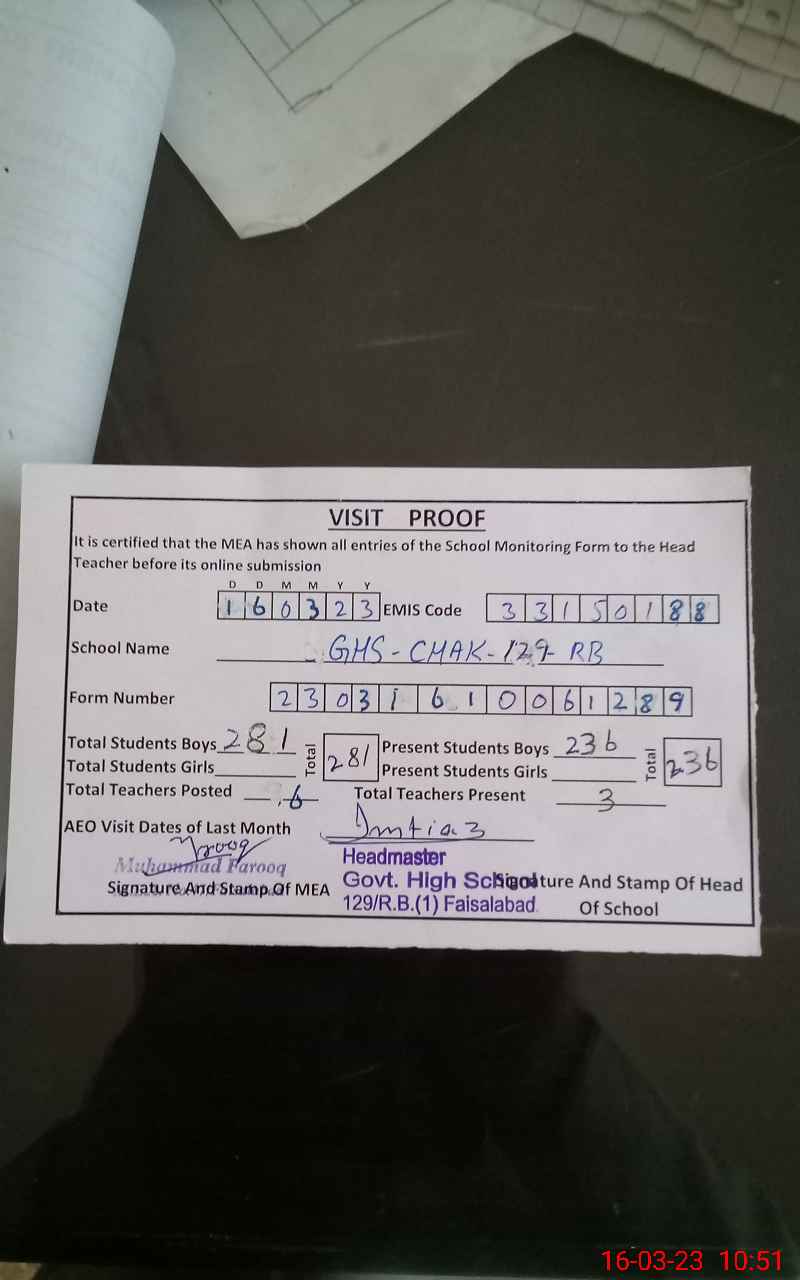 VISIT PROOF
It is certified that the MEA has shown all entries of the School Monitoring Form to the Head
Teacher before its online submission
D D M M Y Y
Date 1 6 0 3 2 3 EMIS Code 3 3 1 5 0 1 8 8
School Name GHS-CHAK-129-RB
Form Number 2 3 0 3 1 6 1 0 0 6 1 2 8 9
Total Students Boys 281 Total 281 Present Students Boys 236 Total 236
Total Students Girls Present Students Girls
Total Teachers Posted 6 Total Teachers Present 3
AEO Visit Dates of Last Month Imtiaz
Farooq
Muhammad Farooq Headmaster
Signature And Stamp Of MEA Govt. High School Signature And Stamp Of Head
129/R.B.(1) Faisalabad. Of School
16-03-23 10:51